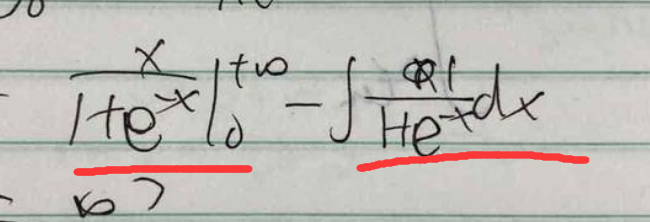 x/(1+e^-x) |_0^+∞ - ∫ 1/(1+e^-x) dx